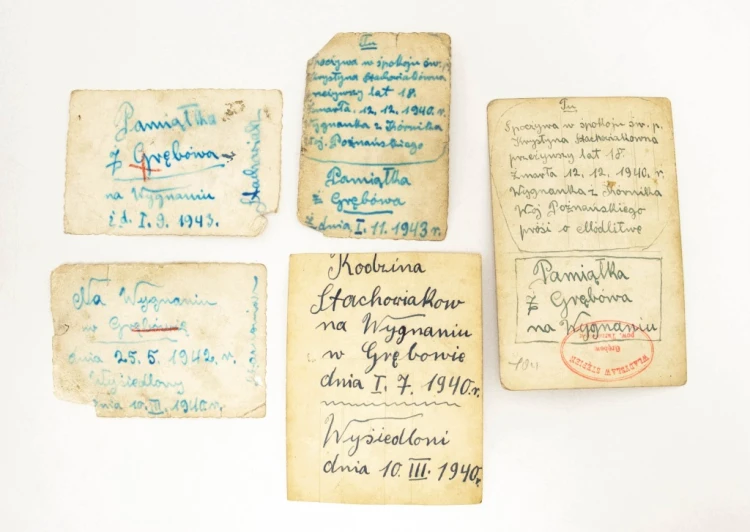 Pamiątka
z Grębowa
na Wygnaniu
z d. I. 9. 1943.
Tu
Spoczywa w spokoju św. p.
Krystyna Stachowiakówna
przeżywszy lat 18.
Zmarła 12. 12. 1940.
Wygnanka z Kórnika
Woj. Poznańskiego
Pamiątka
z Grębówa
z dnia I. 11. 1943 r.
Tu
Spoczywa w spokoju św. p.
Krystyna Stachowiakówna
przeżywszy lat 18.
Zmarła 12. 12. 1940 r.
Wygnanka z Kórnika
Woj Poźnańskiego
prosi o Modlitwę
Pamiątka
z Grębówa
na Wygnaniu
WŁADYSŁAW STĘPIEŃ
Grębów
Na Wygnaniu
w Grębowie
dnia 25. 5. 1942. r.
Wysiedlony
dnia 10. III. 1940 r.
Rodzina
Stachowiakow
na Wygnaniu
w Grębowie
dnia I. 7. 1940. r.
Wysiedloni
dnia 10. III. 1940 r.